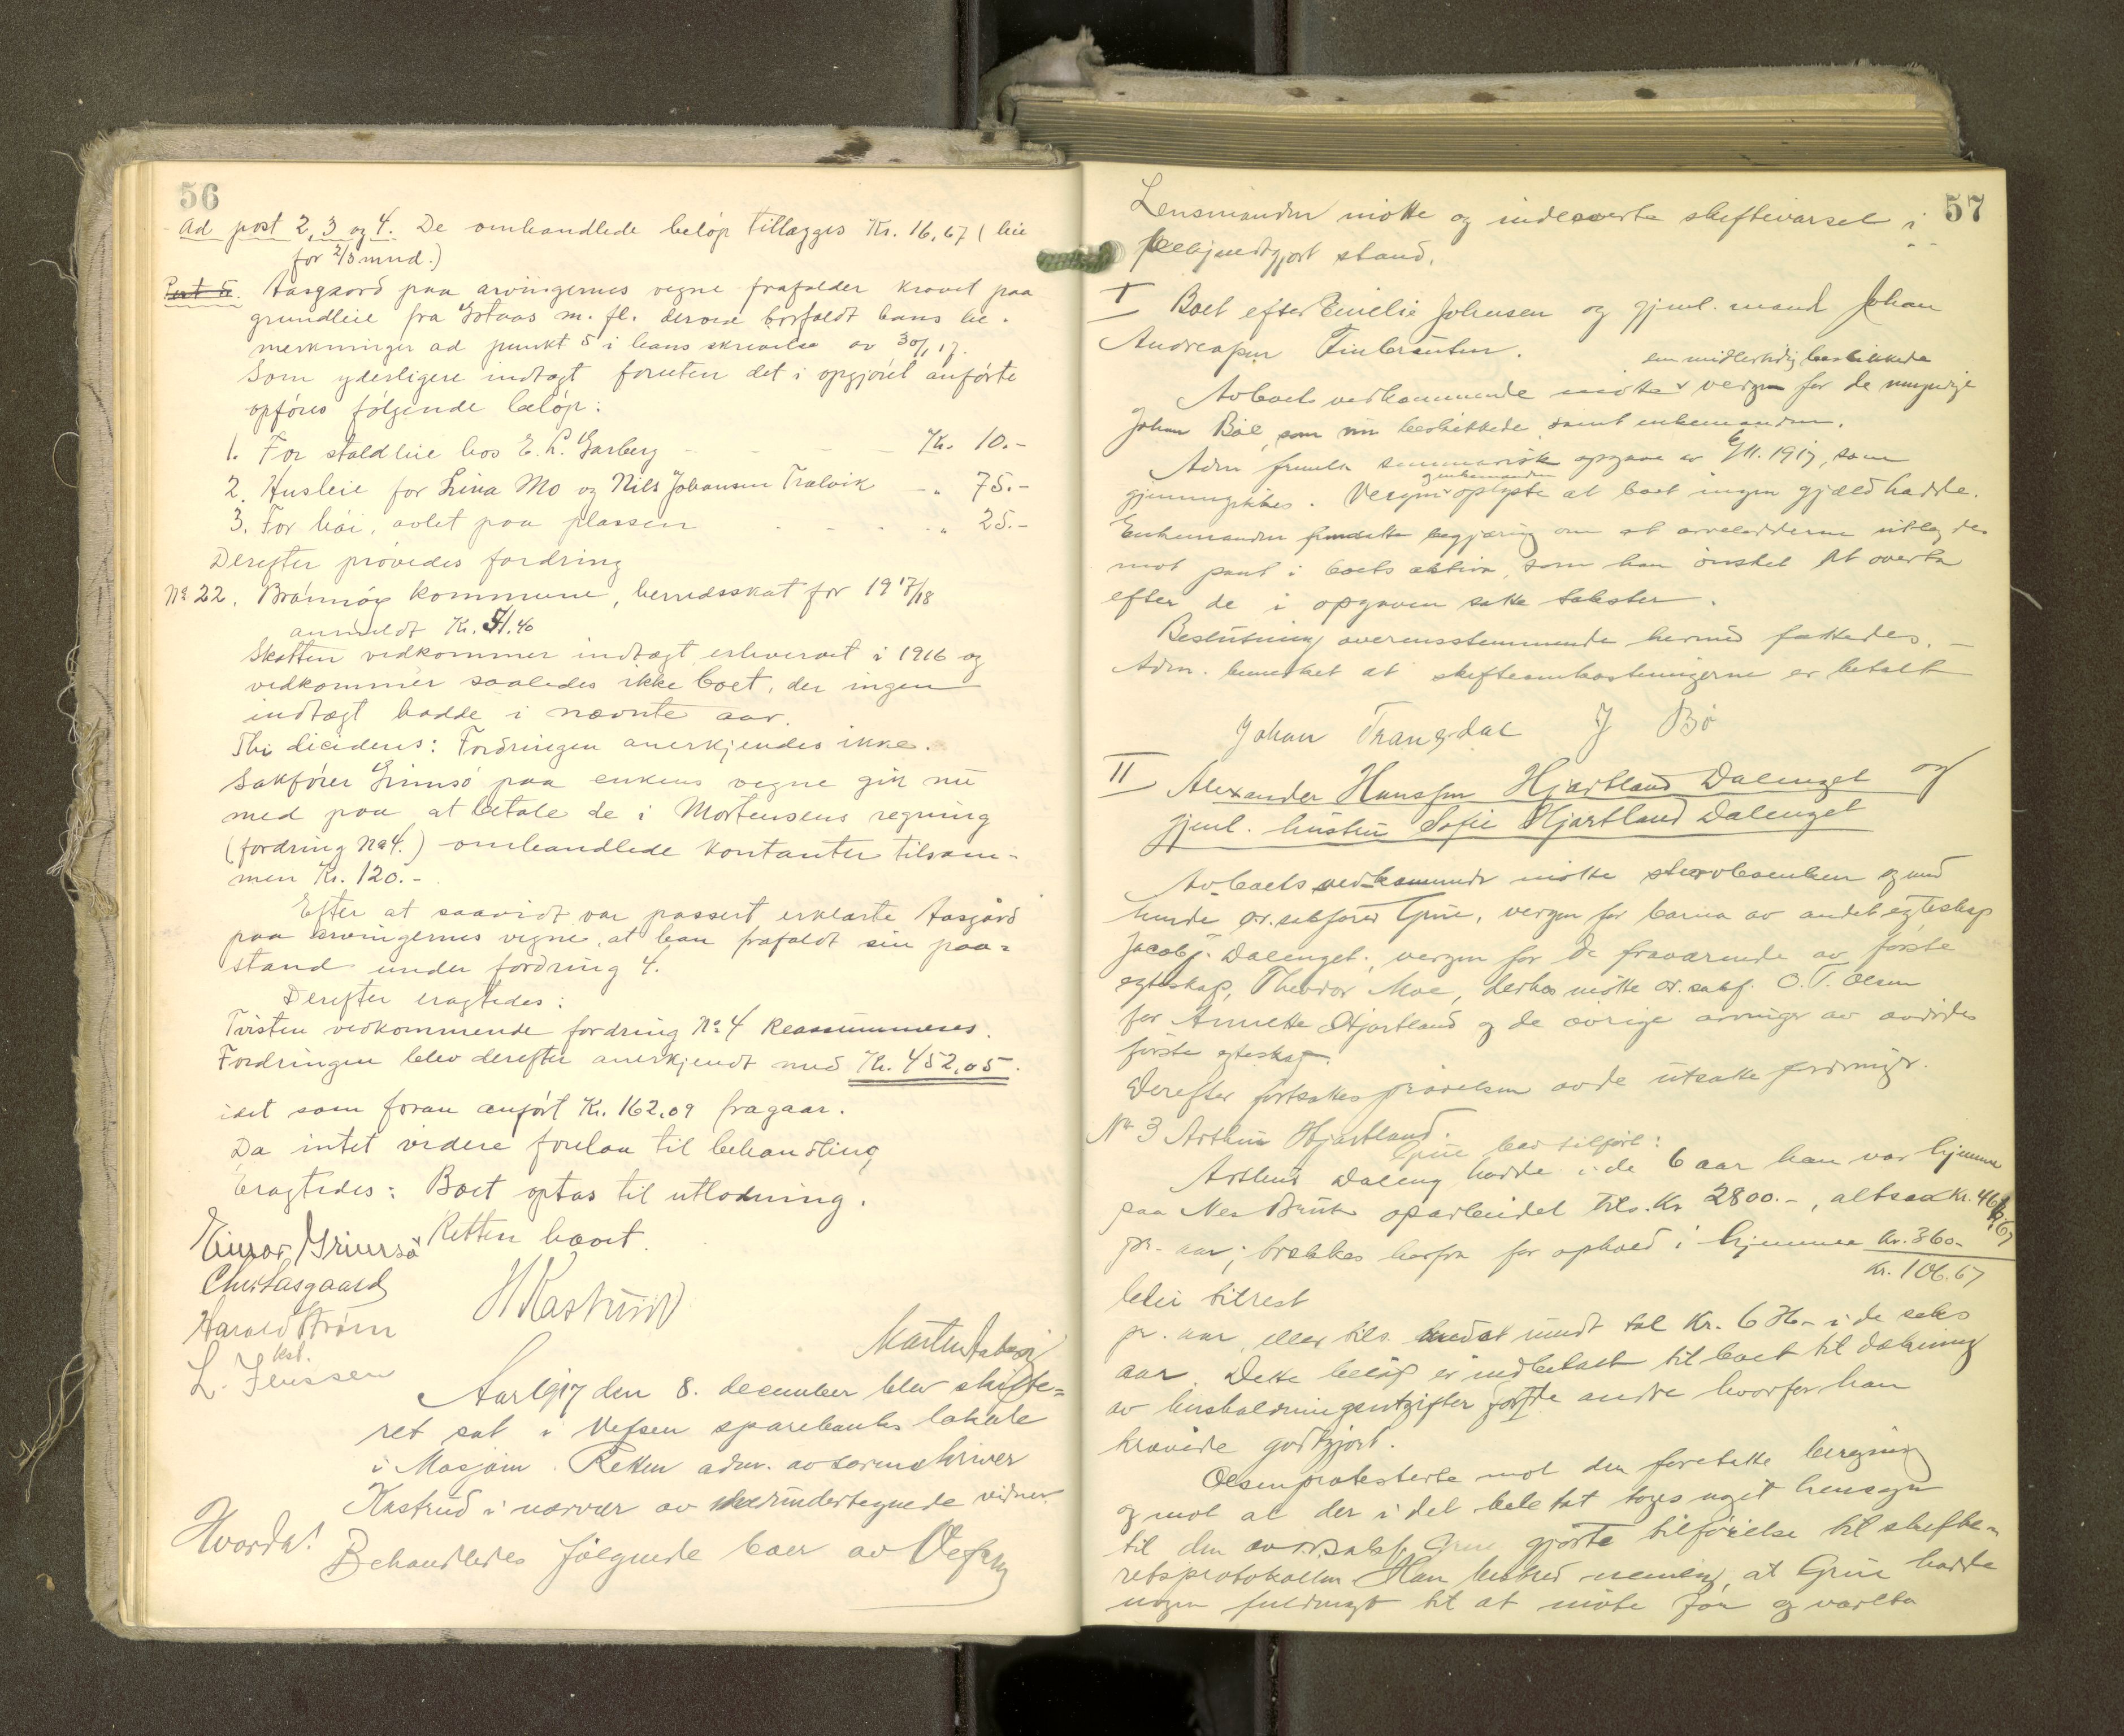 56
Ad post 2, 3 og 4. De omhandlede beløp tillægges Kr. 16,67 (leie
for 2/3 mnd.)
Post 5. Aasgaard paa arvingernes vegne frafalder kravet paa
grundleie fra Gotaas m. fl. derved bortfaldt hans be-
merkninger ad punkt 5 i hans skrivelse av 30/ 17.
Som yderligere indtægt foruten det i opgjøret anførte
opføres følgende beløp:
1. For staldleie hos E. L. Garberg - - - Kr. 10.-
2. Husleie for Lina Mo og Nils Johansen Trælvik - „ 75.-
3. For høi, avlet paa plassen - - - „ 25.-
Derefter prøvedes fordring
No 22. Brønnøy kommune, herredsskat for 1917/18
anmeldt Kr. 51.40
Skatten vedkommer indtægt erhvervet i 1916 og
vedkommer saaledes ikke boet, der ingen
indtægt hadde i nævnte aar.
Thi decideres: Fordringen anerkjendes ikke.
Sakfører Grimsø paa enkens vegne gik nu
med paa at betale de i Mortensens regning
(fordring No 4.) omhandlede kontanter tilsam-
men Kr. 120.-
Efter at saavidt var passert erklærte Aasgård
paa arvingernes vegne, at han frafaldt sin paa-
stand under fordring 4.
Derefter eragtedes:
Tvisten vedkommende fordring No 4 reassummeres.
Fordringen blev derefter anerkjendt med Kr. 452,05.
idet som foran anført Kr. 162,09 fragaar.
Da intet videre forelaa til behandling
Eragtedes: Boet optas til utlodning.
Retten hævet.
Einar Grimsø
Chr. Aasgaard
H Kastrud
Harald Strøm
kst.
L. Jenssen
Martin
Aar 1917 den 8. december blev skifte-
ret sat i Vefsen sparebanks lokale
i Mosjøen. Retten adm. av sorenskriver
Kastrud i nærvær av undertegnede vidner.
Hvorda!
Behandledes følgende boer av Vefsn
57
Lensmanden møtte og indleverte skiftevarsel i
bekjendtgjort stand.
I Boet efter Emelie Johnsen og gjenl. mand Johan
Andreassen
en midlertidig beskikkede
Av boets vedkommende møtte vergen for de umyndige
Johan Bøe, som nu beskikkede samt enkemanden.
Adm. fremla summarisk opgave av 6/11. 1917, som
og enkemanden
gjennemgikkes. Vergen oplyste at boet ingen gjæld hadde.
Enkemanden fremsatte begjæring om at arvelodderne utlegdes
mot pant i boets aktiva, som han ønsket at overta
efter de i opgaven satte takster.
Beslutning overensstemmende hermed fattedes. -
Adm. bemerket at skifteomkostningerne er betalt
Johan Trangdal J Bø
II Alexander Hanssen Hjartland Dalenget og
gjenl. hustru Sofie Hjartland Dalenget
Av boets vedkommende møtte stervboenken og med
hende or. sakfører Grue, vergen for barna av andet egteskap
Jacob J. Dalenget, vergen for de fraværende av første
egteskap, Theodor Moe, derhos møtte or. sakf. O. T. Olsen
for Annette Hjartland og de øvrige arvinger av avdødes
første egteskap.
Derefter fortsattes prøvelsen av de utsatte fordringer.
No 3 Arthur Hjartland.
Grue bad tilført:
Arthur Daleng hadde i de 6 aar han var hjemme
paa Nes Bruk oparbeidet tils. Kr 2800.-, altsaa Kr. 466,67
pr. aar; trækkes herfra for ophold i hjemmet Kr. 360.-
Kr. 106.67
blir tilrest
pr. aar, eller tils. rundt tal Kr. 636.- i de seks
aar. Dette beløp er indbetalt til boet til dækning
av husholdningsutgifter for de andre hvorfor han
krævde godtgjort.
Olsen protesterte mot den foretatte beregning
og mot at der i det hele tat toges noget hensyn
til den av or. sakf. Grue gjorte tilførelse til skifte-
retsprotokollen. Han bestred nemlig, at Grue hadde
nogen fuldmagt til at møte for og vareta